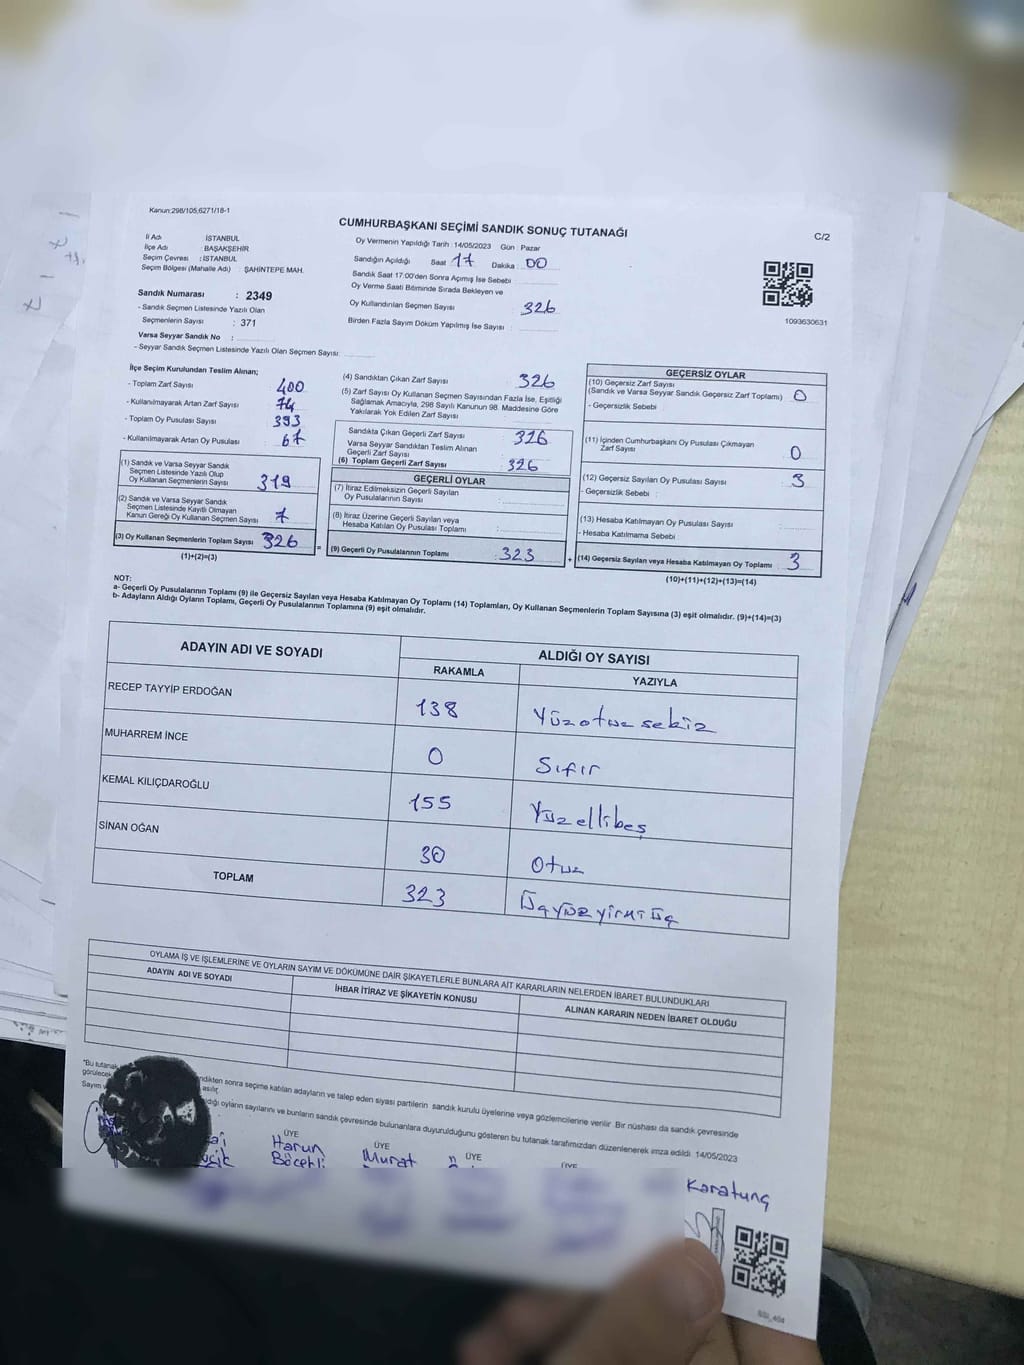 Kanun:298/105,6271/18-1
CUMHURBAŞKANI SEÇİMİ SANDIK SONUÇ TUTANAĞI
C/2
İl Adı İSTANBUL
İlçe Adı : BAŞAKŞEHİR
Seçim Çevresi : İSTANBUL
Seçim Bölgesi (Mahalle Adı) : ŞAHİNTEPE MAH.
Sandık Numarası : 2349
- Sandık Seçmen Listesinde Yazılı Olan
Seçmenlerin Sayısı : 371
Varsa Seyyar Sandık No :
- Seyyar Sandık Seçmen Listesinde Yazılı Olan Seçmen Sayısı:
Oy Vermenin Yapıldığı Tarih : 14/05/2023 Gün : Pazar
Sandığın Açıldığı Saat 17 Dakika 00
Sandık Saat 17:00'den Sonra Açımış İse Sebebi
Oy Verme Saati Bitiminde Sırada Bekleyen ve
Oy Kullandırılan Seçmen Sayısı : 326
Birden Fazla Sayım Döküm Yapılmış İse Sayısı :
1093630631
İlçe Seçim Kurulundan Teslim Alınan;
- Toplam Zarf Sayısı : 400
- Kullanılmayarak Artan Zarf Sayısı : 74
- Toplam Oy Pusulası Sayısı : 393
- Kullanılmayarak Artan Oy Pusulası : 67
(1) Sandık ve Varsa Seyyar Sandık
Seçmen Listesinde Yazılı Olup
Oy Kullanan Seçmenlerin Sayısı : 319
(2) Sandık ve Varsa Seyyar Sandık
Seçmen Listesinde Kayıtlı Olmayan
Kanun Gereği Oy Kullanan Seçmen Sayısı : 7
(3) Oy Kullanan Seçmenlerin Toplam Sayısı : 326
(1)+(2)=(3)
(4) Sandıktan Çıkan Zarf Sayısı : 326
(5) Zarf Sayısı Oy Kullanan Seçmen Sayısından Fazla İse, Eşitliği
Sağlamak Amacıyla, 298 Sayılı Kanunun 98. Maddesine Göre
Yakılarak Yok Edilen Zarf Sayısı :
Sandıkta Çıkan Geçerli Zarf Sayısı : 326
Varsa Seyyar Sandıktan Teslim Alınan
Geçerli Zarf Sayısı :
(6) Toplam Geçerli Zarf Sayısı : 326
GEÇERLİ OYLAR
(7) İtiraz Edilmeksizin Geçerli Sayılan
Oy Pusulalarının Sayısı :
(8) İtiraz Üzerine Geçerli Sayılan veya
Hesaba Katılan Oy Pusulası Toplamı :
= (9) Geçerli Oy Pusulalarının Toplamı : 323
GEÇERSİZ OYLAR
(10) Geçersiz Zarf Sayısı
(Sandık ve Varsa Seyyar Sandık Geçersiz Zarf Toplamı) : 0
- Geçersizlik Sebebi :
(11) İçinden Cumhurbaşkanı Oy Pusulası Çıkmayan
Zarf Sayısı : 0
(12) Geçersiz Sayılan Oy Pusulası Sayısı : 3
- Geçersizlik Sebebi :
(13) Hesaba Katılmayan Oy Pusulası Sayısı :
- Hesaba Katılmama Sebebi :
+ (14) Geçersiz Sayılan veya Hesaba Katılmayan Oy Toplamı : 3
(10)+(11)+(12)+(13)=(14)
NOT:
a- Geçerli Oy Pusulalarının Toplamı (9) ile Geçersiz Sayılan veya Hesaba Katılmayan Oy Toplamı (14) Toplamları, Oy Kullanan Seçmenlerin Toplam Sayısına (3) eşit olmalıdır. (9)+(14)=(3)
b- Adayların Aldığı Oyların Toplamı, Geçerli Oy Pusulalarının Toplamına (9) eşit olmalıdır.
ADAYIN ADI VE SOYADI ALDIĞI OY SAYISI
RAKAMLA YAZIYLA
RECEP TAYYİP ERDOĞAN 138 Yüzotuzsekiz
MUHARREM İNCE 0 Sıfır
KEMAL KILIÇDAROĞLU 155 Yüzellibeş
SİNAN OĞAN 30 Otuz
TOPLAM 323 Üçyüzyirmiüç
OYLAMA İŞ VE İŞLEMLERİNE VE OYLARIN SAYIM VE DÖKÜMÜNE DAİR ŞİKAYETLERLE BUNLARA AİT KARARLARIN NELERDEN İBARET BULUNDUKLARI
ADAYIN ADI VE SOYADI İHBAR İTİRAZ VE ŞİKAYETİN KONUSU ALINAN KARARIN NEDEN İBARET OLDUĞU
"Bu tutanak ndikten sonra seçime katılan adayların ve talep eden siyasi partilerin sandık kurulu üyelerine veya gözlemcilerine verilir. Bir nüshası da sandık çevresinde
görülecek asılır.
Sayım v dığı oyların sayılarını ve bunların sandık çevresinde bulunanlara duyurulduğunu gösteren bu tutanak tarafımızdan düzenlenerek imza edildi. 14/05/2023
ÜYE ÜYE ÜYE
Harun Murat
Böcekli
Karatunç